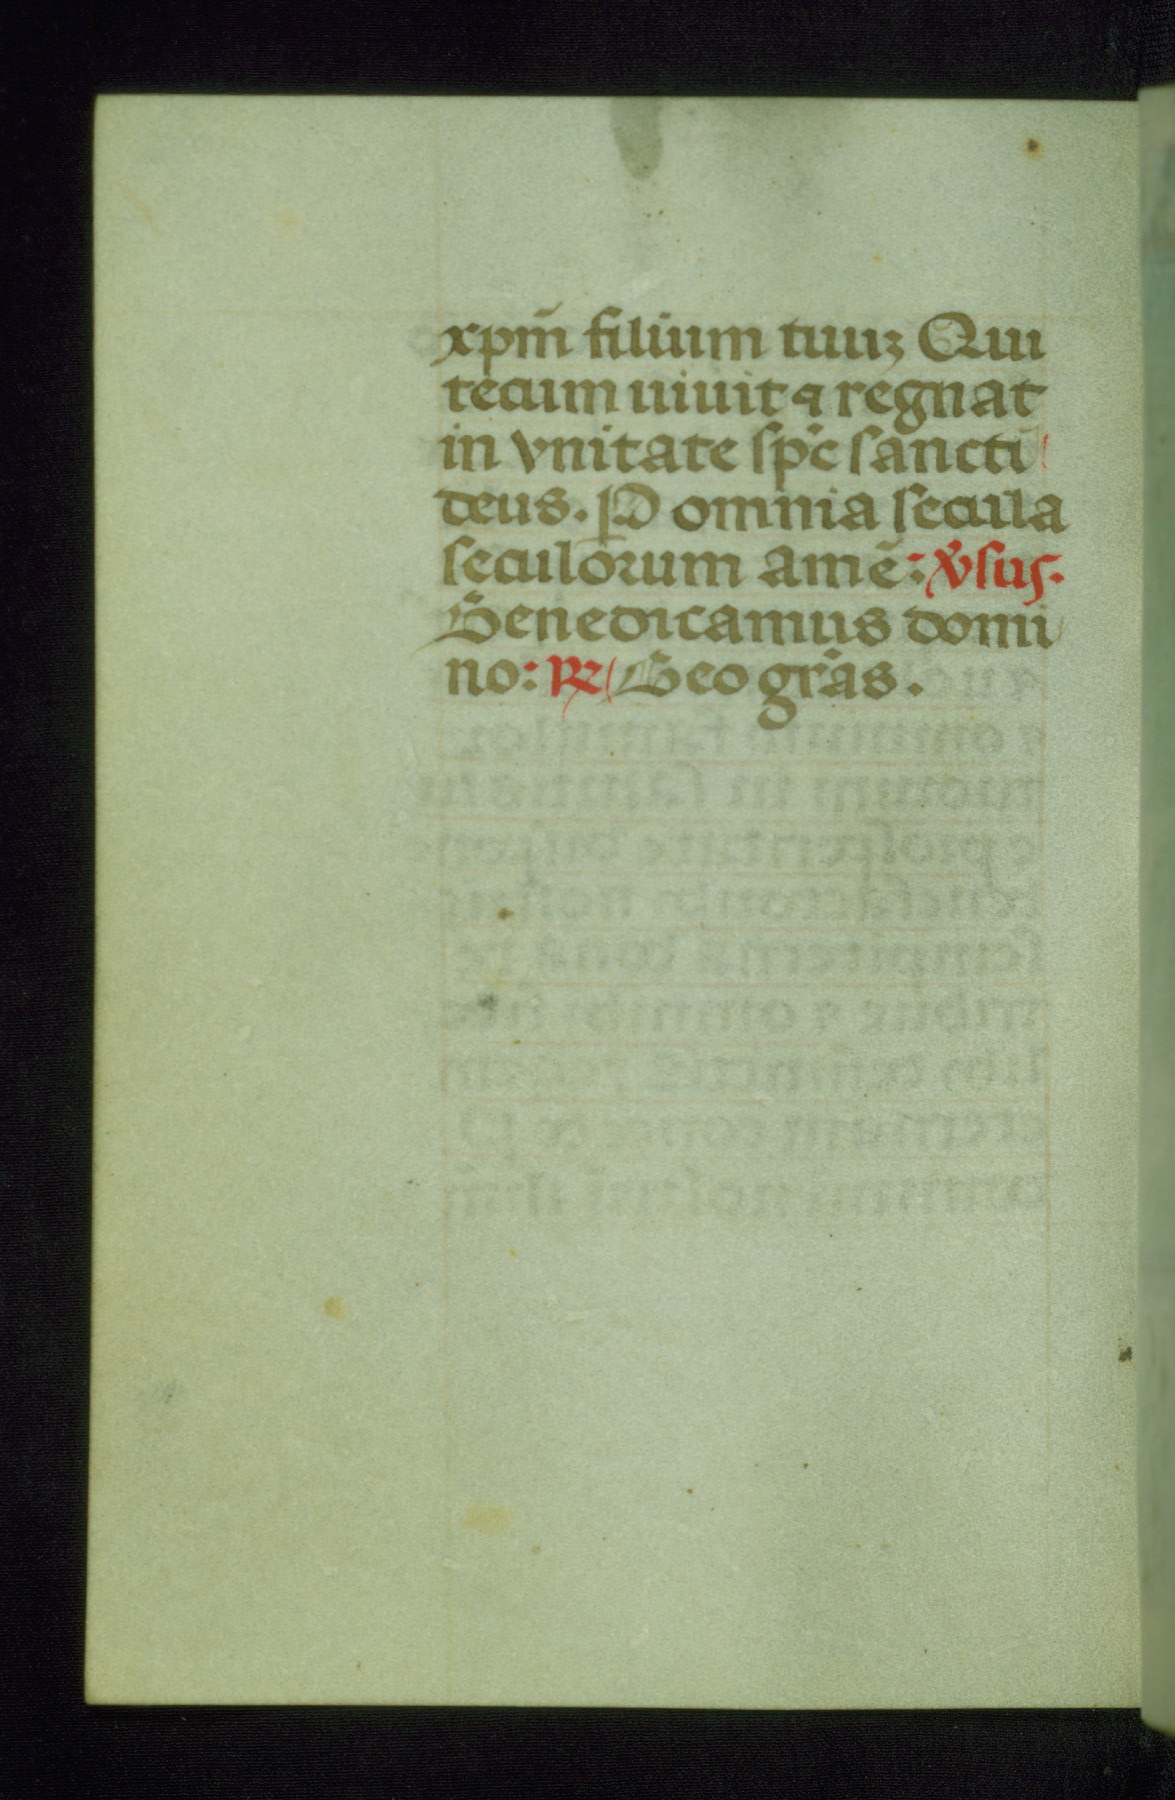 xpm̄ filium tuuꝫ Qui
tecum uiuit ⁊ regnat
in vnitate sp̄c sancti
deus. P omnia secula
seculorum amē: v̄sus.
Benedicamus domi
no: R Deo gr̄as.